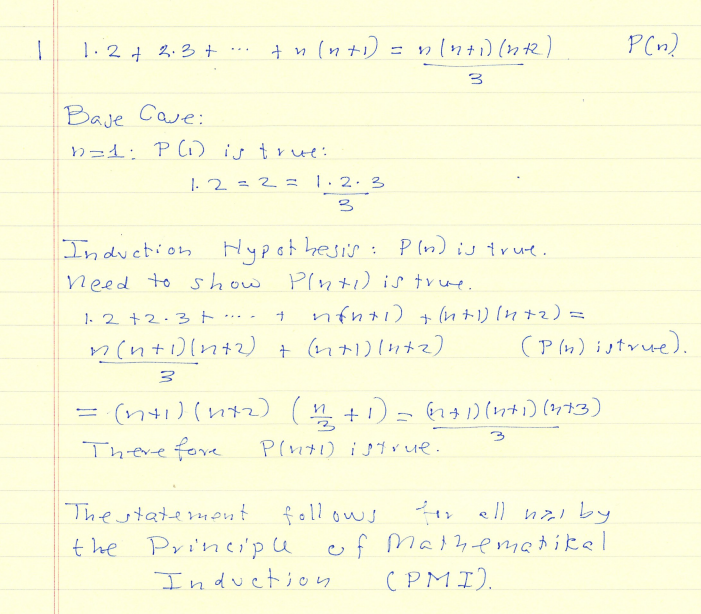 1 1·2 + 2·3 + ··· + n(n+1) = n(n+1)(n+2) P(n)
3
Base Case:
n=1: P(1) is true:
1·2 = 2 = 1·2·3
3
Induction Hypothesis: P(n) is true.
Need to show P(n+1) is true.
1·2 + 2·3 + ···· + n(n+1) + (n+1)(n+2) =
n(n+1)(n+2) + (n+1)(n+2) (P(n) is true).
3
= (n+1)(n+2) (n/3 + 1) = (n+1)(n+1)(n+3)
3
Therefore P(n+1) is true.
The statement follows for all n≥1 by
the Principle of Mathematikal
Induction (PMI).